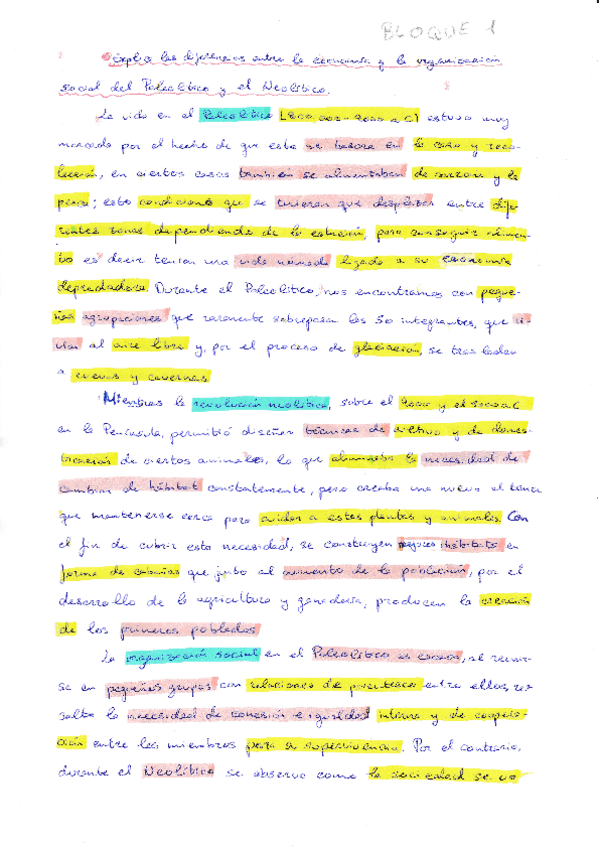 BLOQUE 1
Explica las diferencias entre la economía y la organización
social del Paleolítico y el Neolítico.
La vida en el Paleolítico (800.000-5000 a.C) estuvo muy
marcada por el hecho de que esta se basara en la caza y reco-
lección, en ciertos casos también se alimentaban de carroña y la
pesca; esto condicionó que se tuvieran que desplazar entre dife-
rentes zonas dependiendo de la estación, para conseguir alimen-
to es decir tenían una vida nómada ligada a su economía
depredadora. Durante el Paleolítico, nos encontramos con peque-
ñas agrupaciones que raramente sobrepasan los 50 integrantes, que vi-
vían al aire libre y, por el proceso de glaciación, se trasladan
a cuevas y cavernas
Mientras la revolución neolítica, sobre el y el
en la Península, permitió diseñar técnicas de cultivo y de domes-
ticación de ciertos animales, lo que la necesidad de
cambiar de hábitat constantemente, pero creaba una nueva el tener
que mantenerse cerca para cuidar a estas plantas y animales. Con
el fin de cubrir esta necesidad, se construyen hábitats en
forma de cabañas que junto al aumento de la población, por el
desarrollo de la agricultura y ganadería, producen la creación
de los primeros poblados
La organización social en el Paleolítico es escasa, al reunir-
se en pequeños grupos con relaciones de parentesco entre ellos, re-
salta la necesidad de conexión e igualdad interna y de coopera-
ción entre los miembros para su supervivencia. Por el contrario,
durante el Neolítico se observa como la sociedad se va